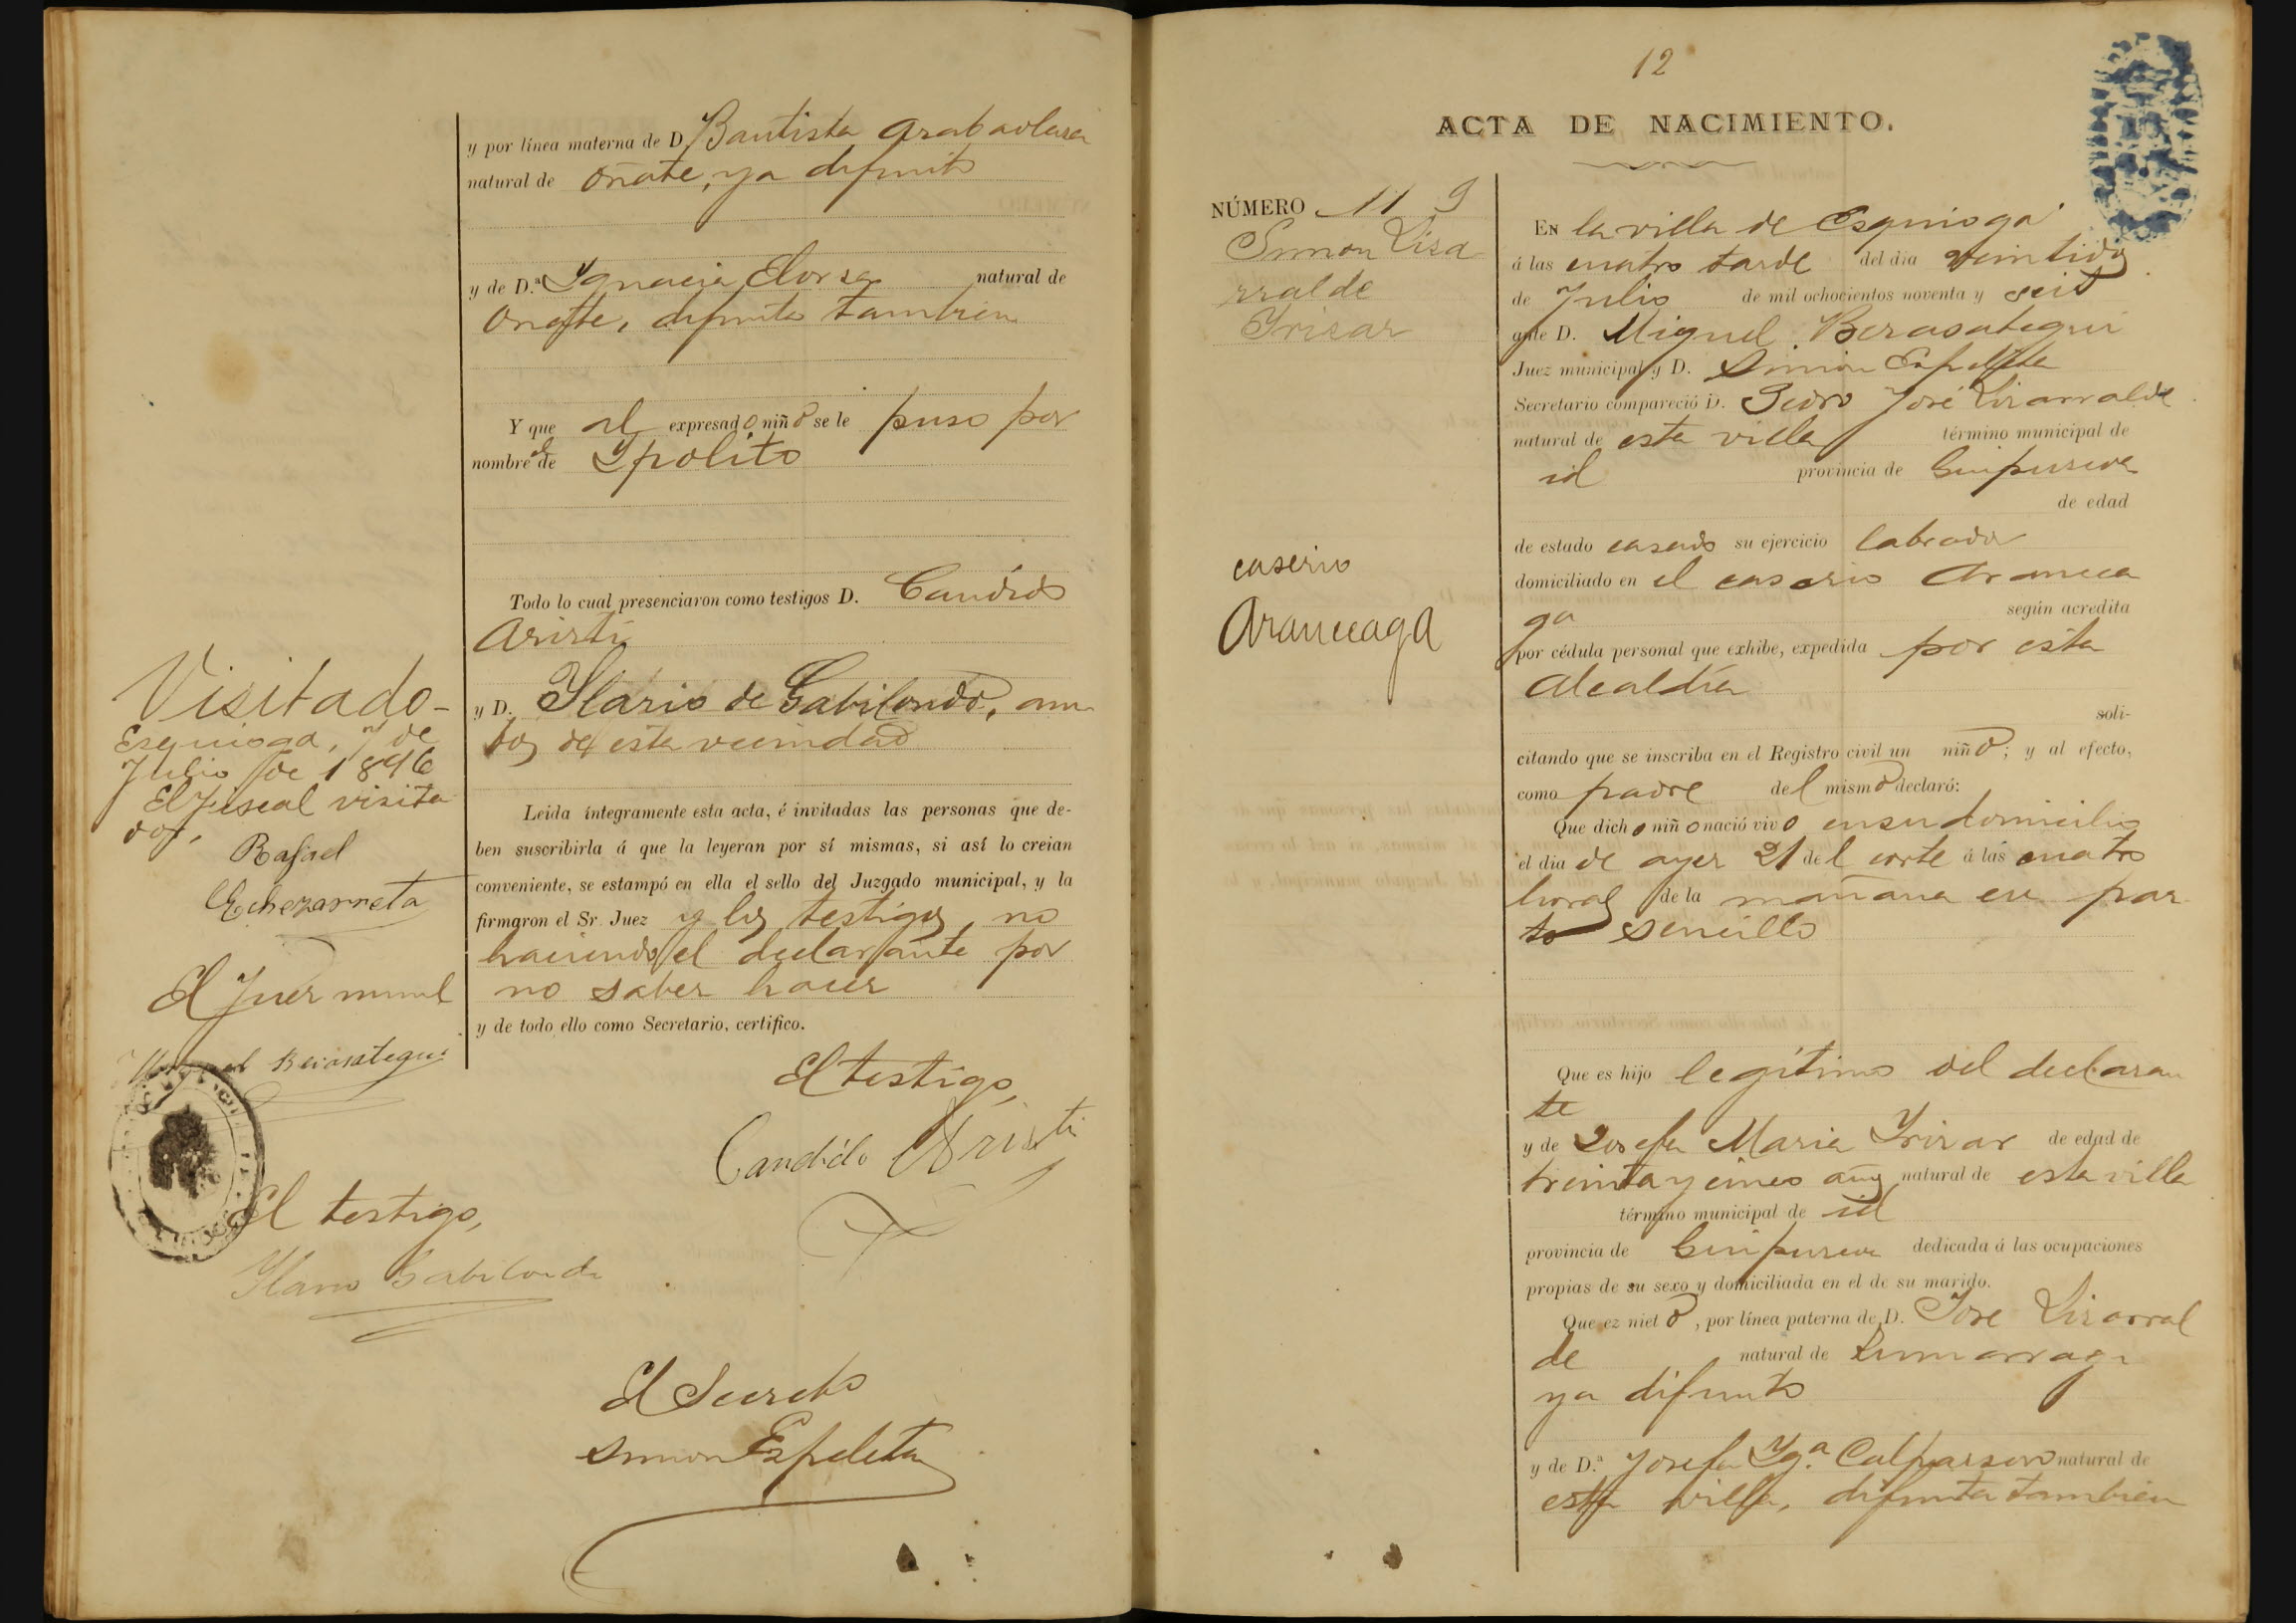 y por línea materna de D. Bautista Arabaolaza
natural de Oñate, ya difunto
y de D.ª Ygnacia Elorza natural de
Oñate, difunta tambien
Y que al expresado niño se le puso por
nombre el de Ypolito
Todo lo cual presenciaron como testigos D. Candido
Aristi
y D. Ylario de Gabilondo, am-
bos de esta vecindad
Leida íntegramente esta acta, é invitadas las personas que de-
ben suscribirla á que la leyeran por sí mismas, si así lo creian
conveniente, se estampó en ella el sello del Juzgado municipal, y la
firmaron el Sr. Juez y los testigos, no
haciendo el declarante por
no saber hacer
y de todo ello como Secretario, certifico.
El testigo,
Candido Aristi
Visitado-
Esquioga, 7 de
Julio de 1896
El Fiscal visita
dor,
Rafael
Echezarreta
El Juez munl
Miguel Berasategui
El testigo,
Ylario Gabilondo
El Secreto
Simon Expeleta
12
ACTA DE NACIMIENTO.
NÚMERO 11 9
Simon Liza
rralde
Yrizar
caserio
Aranceaga
En la villa de Esquioga
á las cuatro tarde del dia veintidos
de Julio de mil ochocientos noventa y seis
ante D. Miguel Berasategui
Juez municipal y D. Simon Expeleta
Secretario compareció D. Pedro José Lizarralde
natural de esta villa término municipal de
id provincia de Guipuzcoa
de edad
de estado casado su ejercicio labrador
domiciliado en el caserio Arancea
ga según acredita
por cédula personal que exhibe, expedida por esta
Alcaldía
soli-
citando que se inscriba en el Registro civil un niño; y al efecto,
como padre del mismo declaró:
Que dicho niño nació vivo en su domicilio
el dia de ayer 21 del corte á las cuatro
horas de la mañana en par
to sencillo
Que es hijo legítimo del declaran
te
y de Josefa Maria Yrizar de edad de
treinta y cinco años natural de esta villa
término municipal de id
provincia de Guipuzcoa dedicada á las ocupaciones
propias de su sexo y domiciliada en el de su marido.
Que ez nieto, por línea paterna de D. Jose Lizarral
de natural de Zumarraga
ya difunto
y de D.ª Josefa Yg.ª Calparsoro natural de
esta villa, difunta tambien